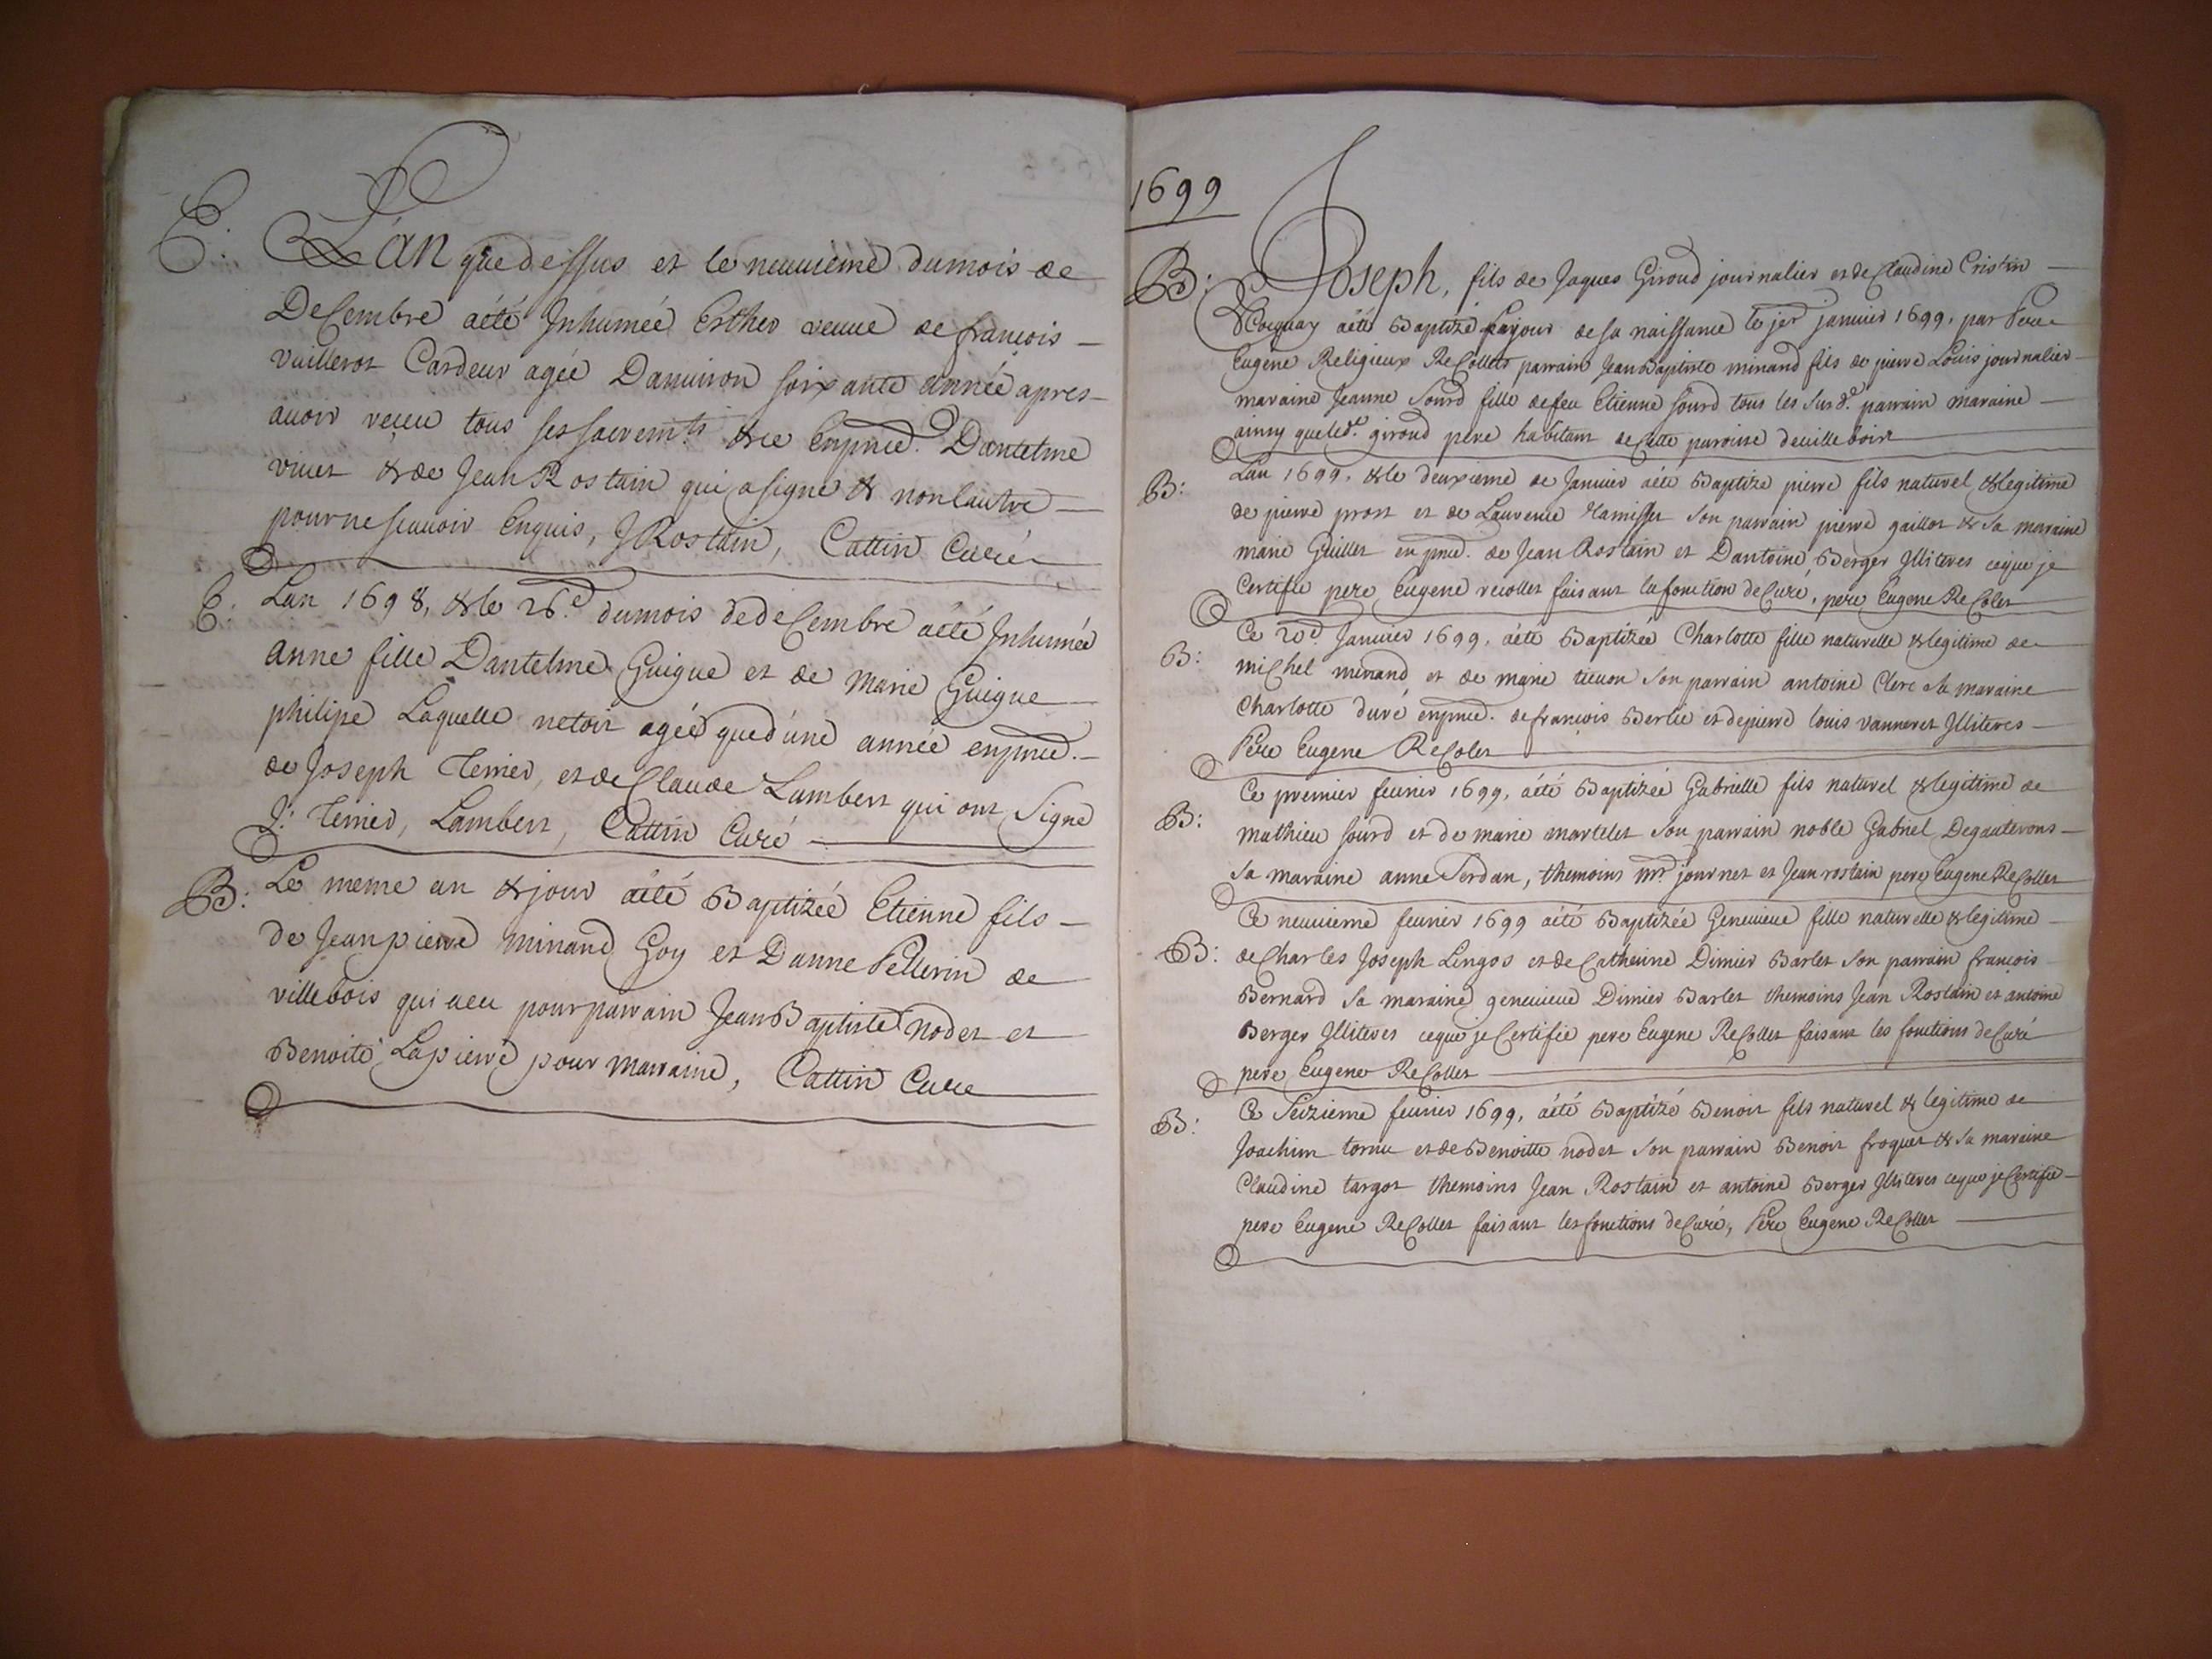 E: L'an que dessus et le neuuieme du mois de
DeCembre aété Inhumée Esther veuue de francois
vuillerot Cardeur agée Danuiron soixante année apres
auoir receu tous ses sacremts & ce Enpnce. Dantelme
viuet & de Jean Rostain qui a signé & non lautre
pour ne scauoir Enquis, JRostain, Cattin Curé
E: Lan 1698, & le 26e. du mois de deCembre aété Inhumée
anne fille Dantelme Guigue et de Marie Guigue
philipe Laquelle netoit agée que d'une année enpnce.
de Joseph Tenier, et de Claude Lambert qui ont Signé
J: Tenier, Lambert, Cattin Curé
B: Le meme an & jour aété Baptizéé Etienne fils
de Jeanpierre minand Goy et Danne Pellerin de
villebois qui aeu pour parrain Jean Baptiste nodet et
Benoite Lapierre pour Marraine, Cattin Cure
1699
B: Joseph, fils de Jaques Giroud journalier et de Claudine Cristin
aété Baptizé le jour de sa naissance le jer janvier 1699, par Pere
Eugene Religieux ReCollets parrain Jean Baptiste minand fils de pierre Louis journalier
maraine Jeanne Sourd fille de feu Etienne Sourd tous les Susd. parrain maraine
ainsy que led. giroud pere habitant de Cette paroisse de villebois
B: Lan 1699, & le deuxieme de Januier aété Baptizé pierre fils naturel & legitime
de pierre prost et de Laurence Ramisset son parrain pierre gaillot & sa marraine
marie Guillet en pnce. de Jean Rostain et Dantoine Berger Illiteres ceque je
Certifie pere Eugene recollet faisant la fonction de Curé, pere Eugene ReColet
B: Ce 20e Januier 1699, aété Baptizéé Charlotte fille naturelle & legitime de
miChel minand et de marie ticuon son parrain antoine Clerc sa maraine
Charlotte duré enpnce. de francois Berlie et de pierre louis vanneret Illiteres
Pere Eugene ReColet
B: Ce premier feurier 1699, aété Baptizéé Gabrielle fils naturel & legitime de
mathieu sourd et de marie martelet son parrain noble Gabriel Degauterons
sa maraine anne Serdan, themoins mr. journet et Jean rostain pere Eugene ReCollet
B: Ce neuuieme feurier 1699 aété Baptizéé Geneuieue fille naturelle & legitime
de Charles Joseph Lingos et de Catherine Dimier Barlet son parrain francois
Bernard sa maraine geneuieue Dimier Barlet themoins Jean Rostain et antoine
Berger Illiteres ceque je Certifie pere Eugene ReCollet faisant les fonctions de Curé
pere Eugene ReCollet
B: Ce Seizieme feurier 1699, aété Baptizé Benoit fils naturel & legitime de
Joachim tornu et de Benoitte nodet son parrain Benoit froquet & sa maraine
Claudine targot themoins Jean Rostain et antoine Berger Illiteres ceque je Certifie
pere Eugene ReCollet faisant les fonctions de Curé, Pere Eugene ReCollet